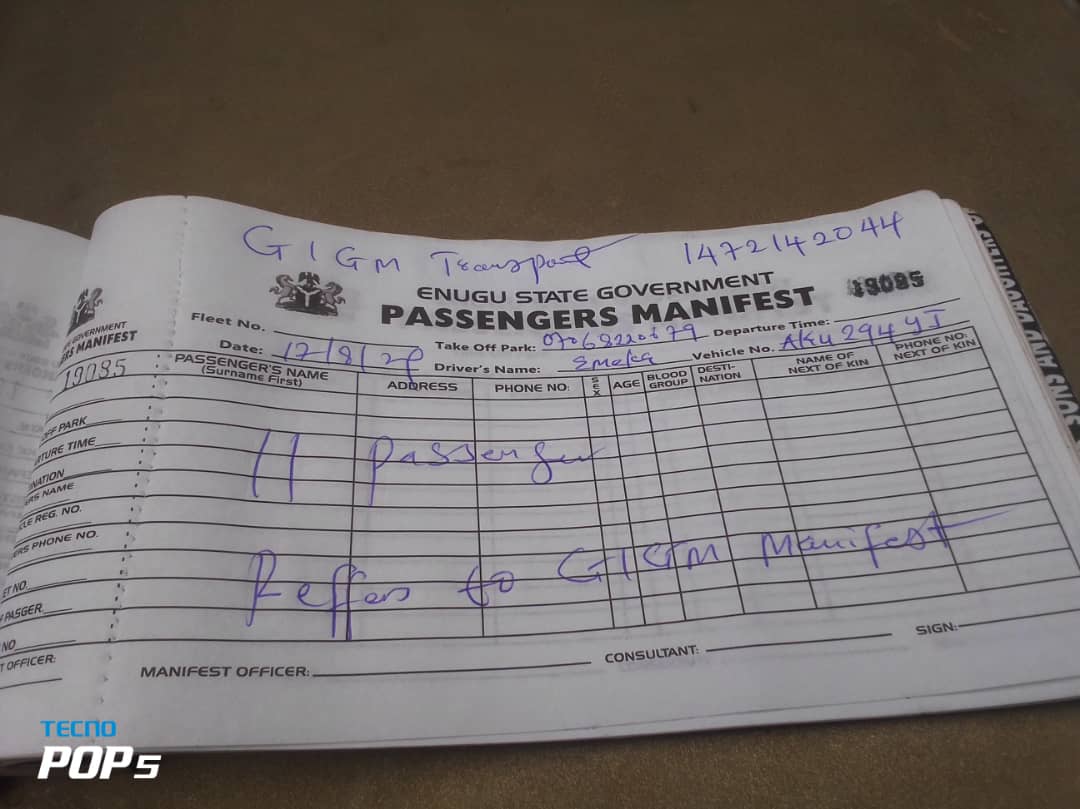 GIGM Transport 1472142044
ENUGU STATE GOVERNMENT
PASSENGERS MANIFEST 19085
Fleet No. Take Off Park: 07068220679 Departure Time:
Date: 17/8/24 Driver's Name: Emeka Vehicle No. AKU 294 YJ
PASSENGER'S NAME (Surname First) ADDRESS PHONE NO: SEX AGE BLOOD GROUP DESTI-NATION NAME OF NEXT OF KIN PHONE NO. NEXT OF KIN
11 passenger
Reffers to GIGM Manifest
MANIFEST OFFICER: CONSULTANT: SIGN:
GOVERNMENT
RS MANIFEST
19085
OFF PARK
RTURE TIME
NATION
RS NAME
LE REG. NO.
RS PHONE NO.
ET NO.
PASGER
NO
T OFFICER:
TECNO
POP 5